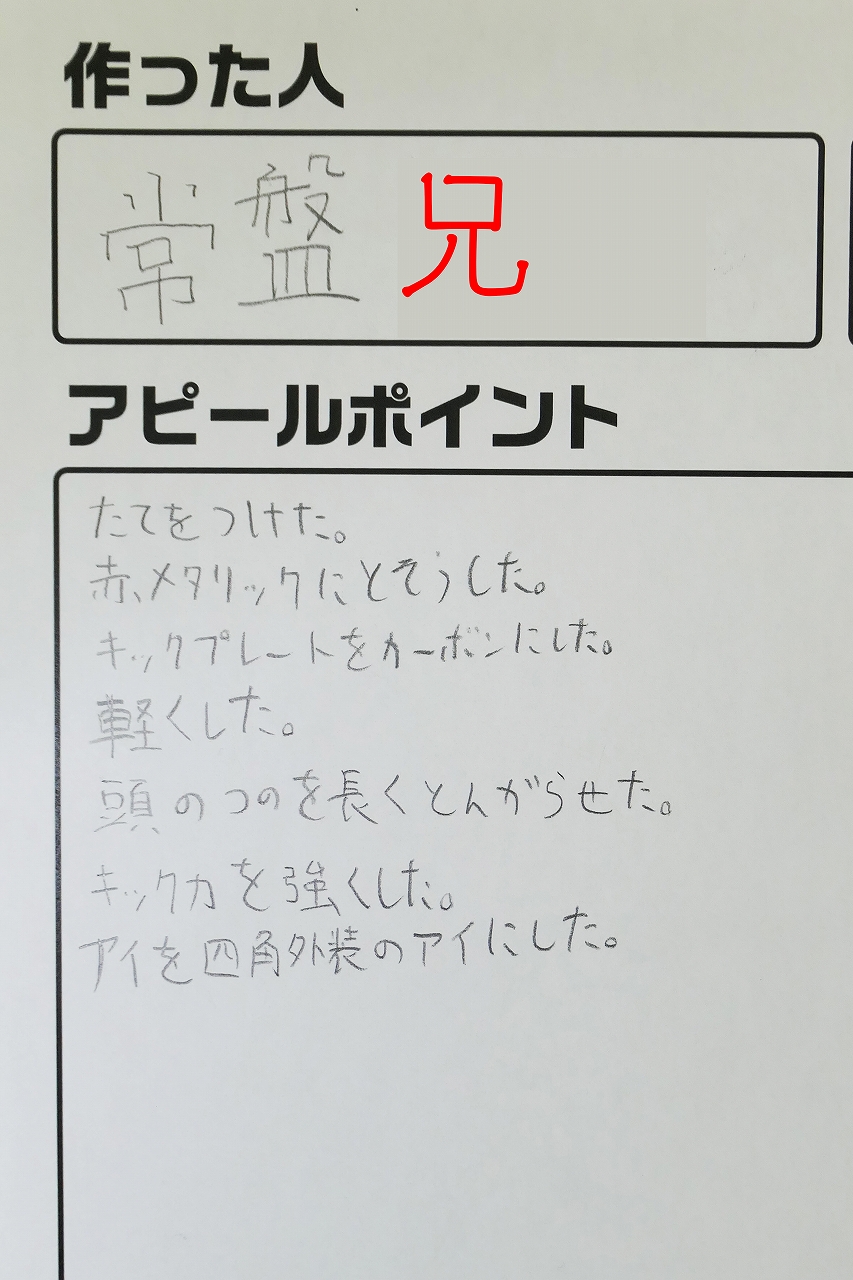 作った人
常盤 兄
アピールポイント
たてをつけた。
赤メタリックにとそうした。
キックプレートをカーボンにした。
軽くした。
頭のつのを長くとんがらせた。
キック力を強くした。
アイを四角外装のアイにした。